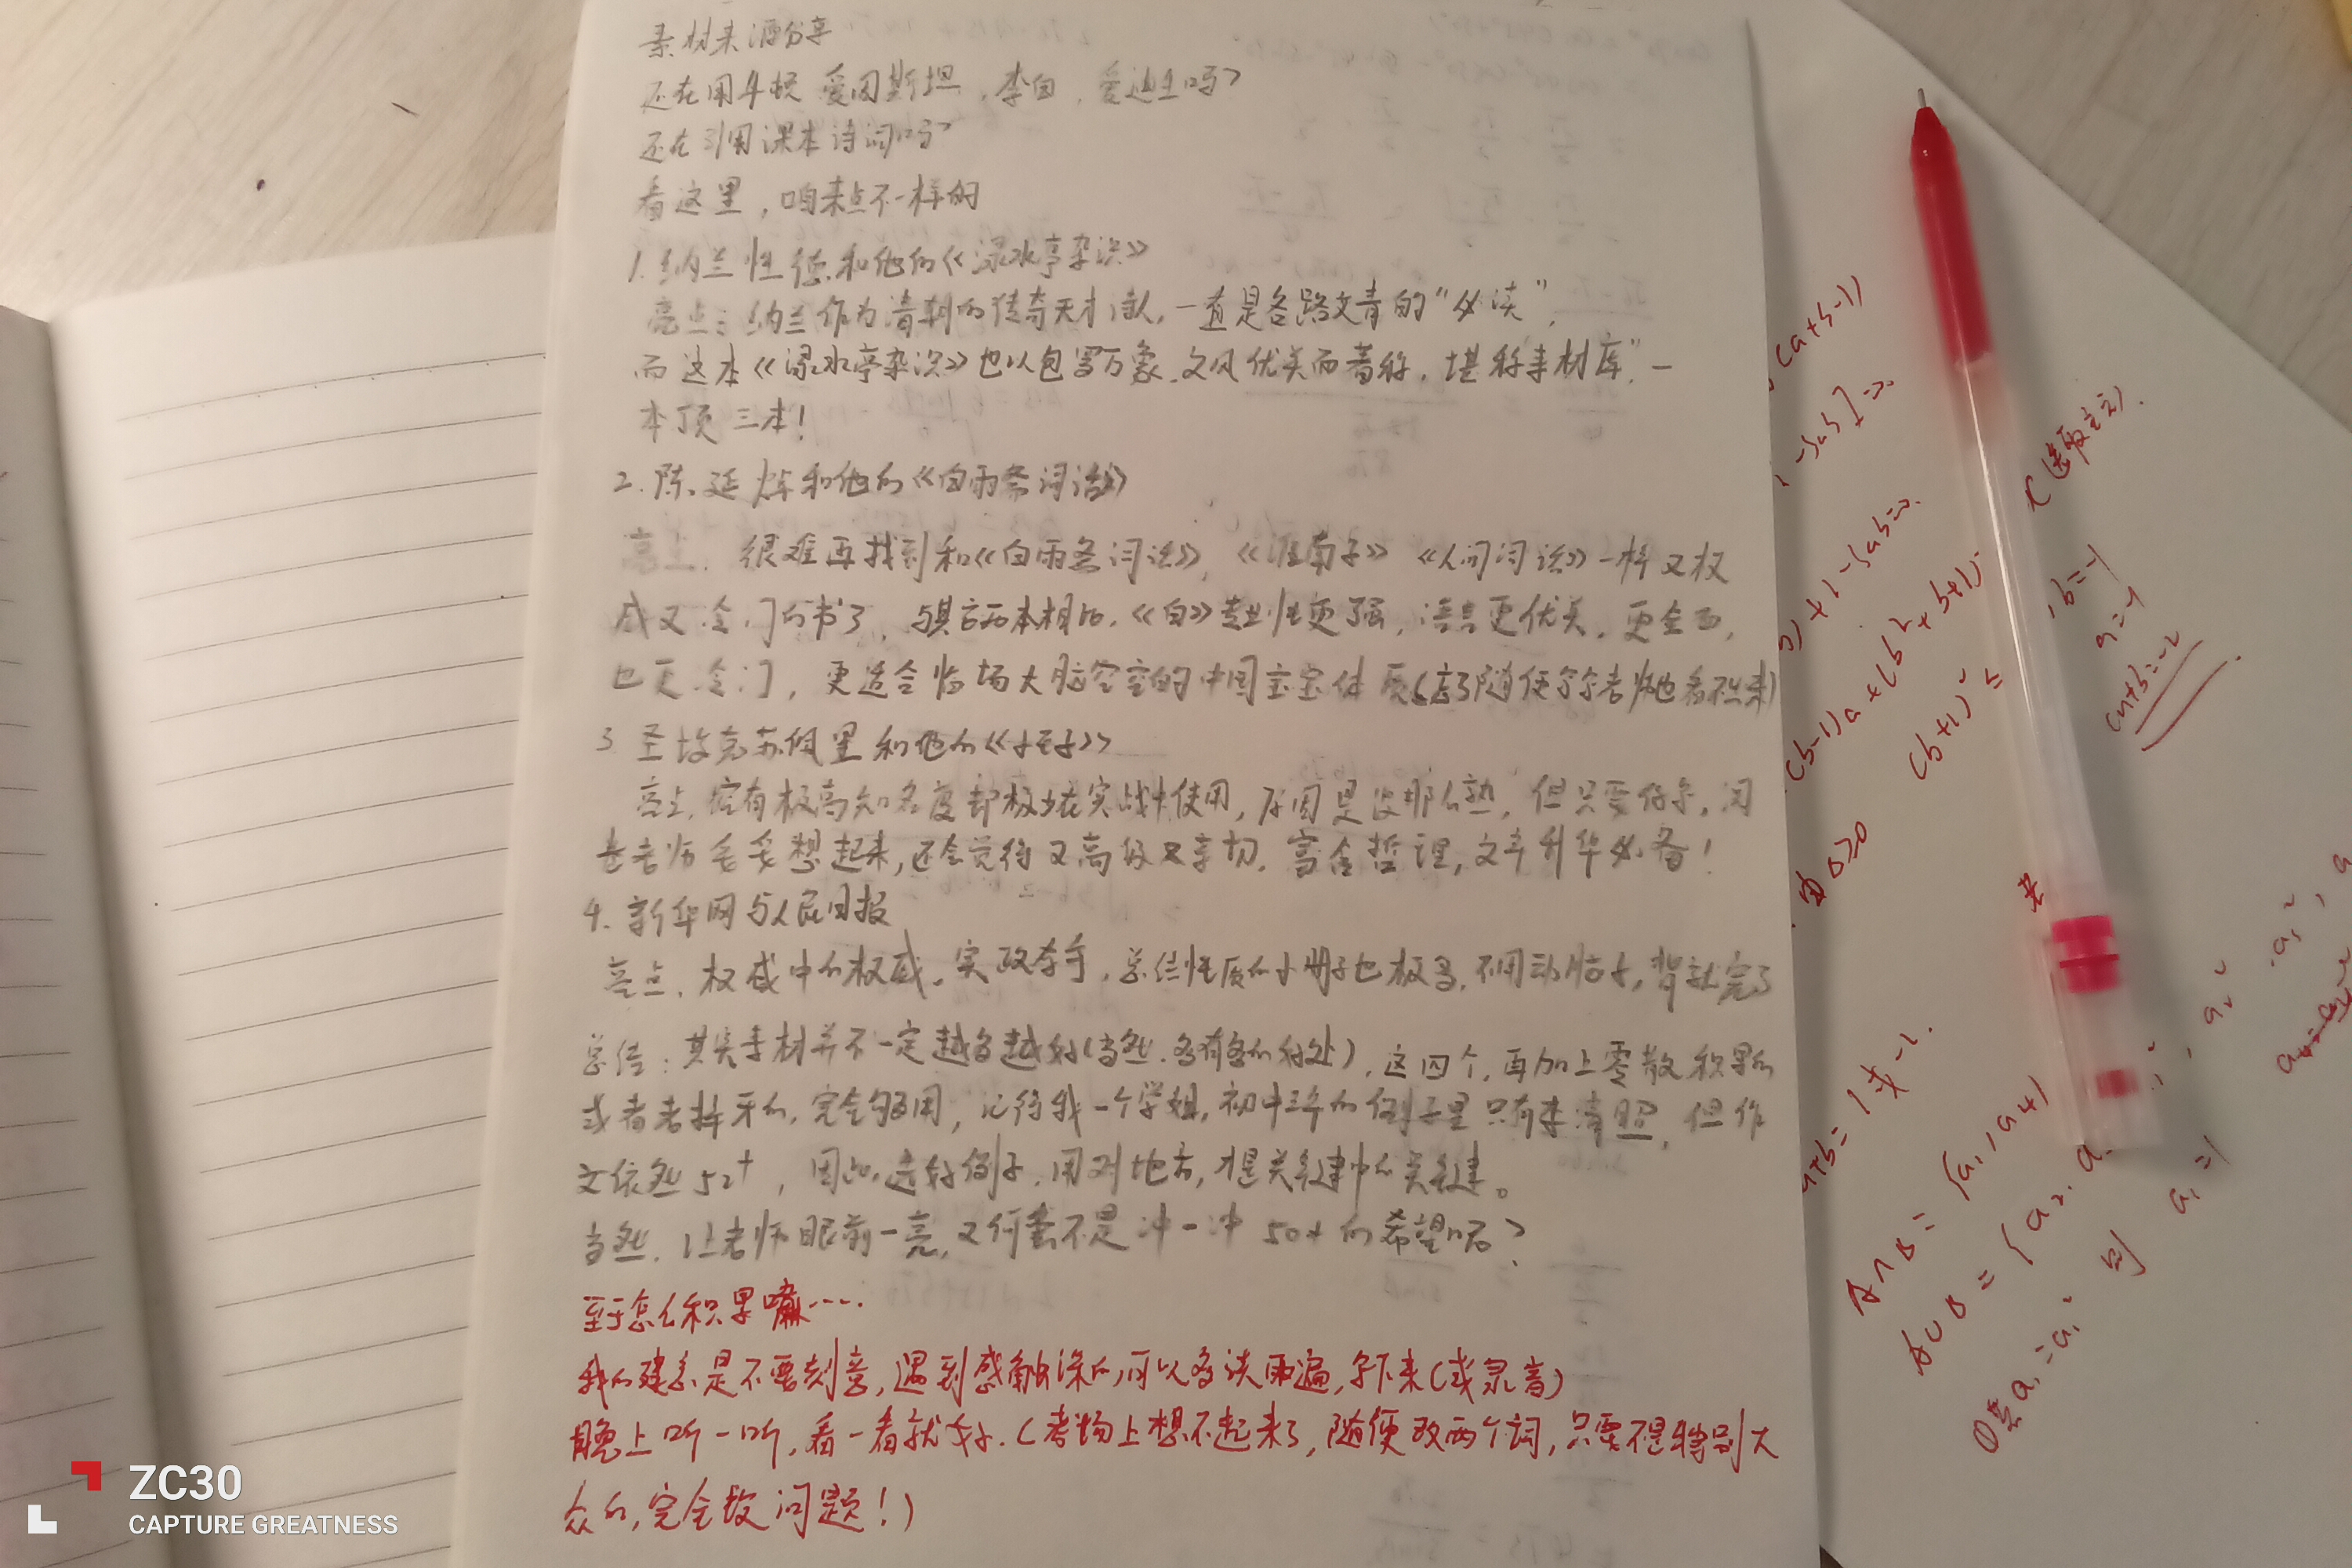 素材来源分享
还在用牛顿 爱因斯坦，李白，爱迪生吗？
还在引用课本诗词吗？
看这里，咱来点不一样的
1. 纳兰性德和他的《渌水亭杂识》
亮点：纳兰作为清朝的传奇天才诗人，一直是各路文青的“必读”，
而这本《渌水亭杂识》也以包罗万象，文风优美而著称，堪称素材库”一
本顶三本！
2. 陈廷焯和他的《白雨斋词话》
亮点：很难再找到和《白雨斋词话》，《淮南子》《人间词话》一样又权
威又冷门的书了，与其它两本相比，《白》专业性更强，语言更优美，更全面，
也更冷门，更适合临场大脑空空的中国宝宝体质（忘了随便写写老师也看不出来）
3 圣埃克苏佩里和他的《小王子》
亮点，拥有极高知名度却极少在实战中使用，原因是没那么熟，但只要你写，阅
卷老师毛毛想起来，还会觉得又高级又亲切，富含哲理，文章升华必备！
4. 新华网与人民日报
亮点，权威中的权威，实政拿手，总结性质的小册子也极多，不用动脑子，背就完了
总结：其实素材并不一定越多越好（当然，多有多的好处），这四个，再加上零散积累的
或者老掉牙的，完全够用，记得我一个学姐，初中三年的例子里只有李清照，但作
文依然52+，因此，选好例子，用对地方，才是关键中的关键。
当然，让老师眼前一亮，又何尝不是冲一冲50+的希望呢？
至于怎么积累嘛……
我的建议是不要刻意，遇到感触深的，可以多读两遍，写下来（或录音）
晚上听一听，看一看就好.（考场上想不起来了，随便改两个词，只要不是特别大
众的，完全没问题！）
(a+b-1)
-3ab]=0
+1-3ab=0.
(b-1)a+(b²+b+1)=
(b+1)²≤
由△≥0
a+b=1或-2.
x(选取主元).
,b=-1
a=-1
(a+b=-2
A∩B={a₁,a₄}
A∪B={a₂,a
①若a₁=a₁² 则 a₁=1
ZC30
CAPTURE GREATNESS